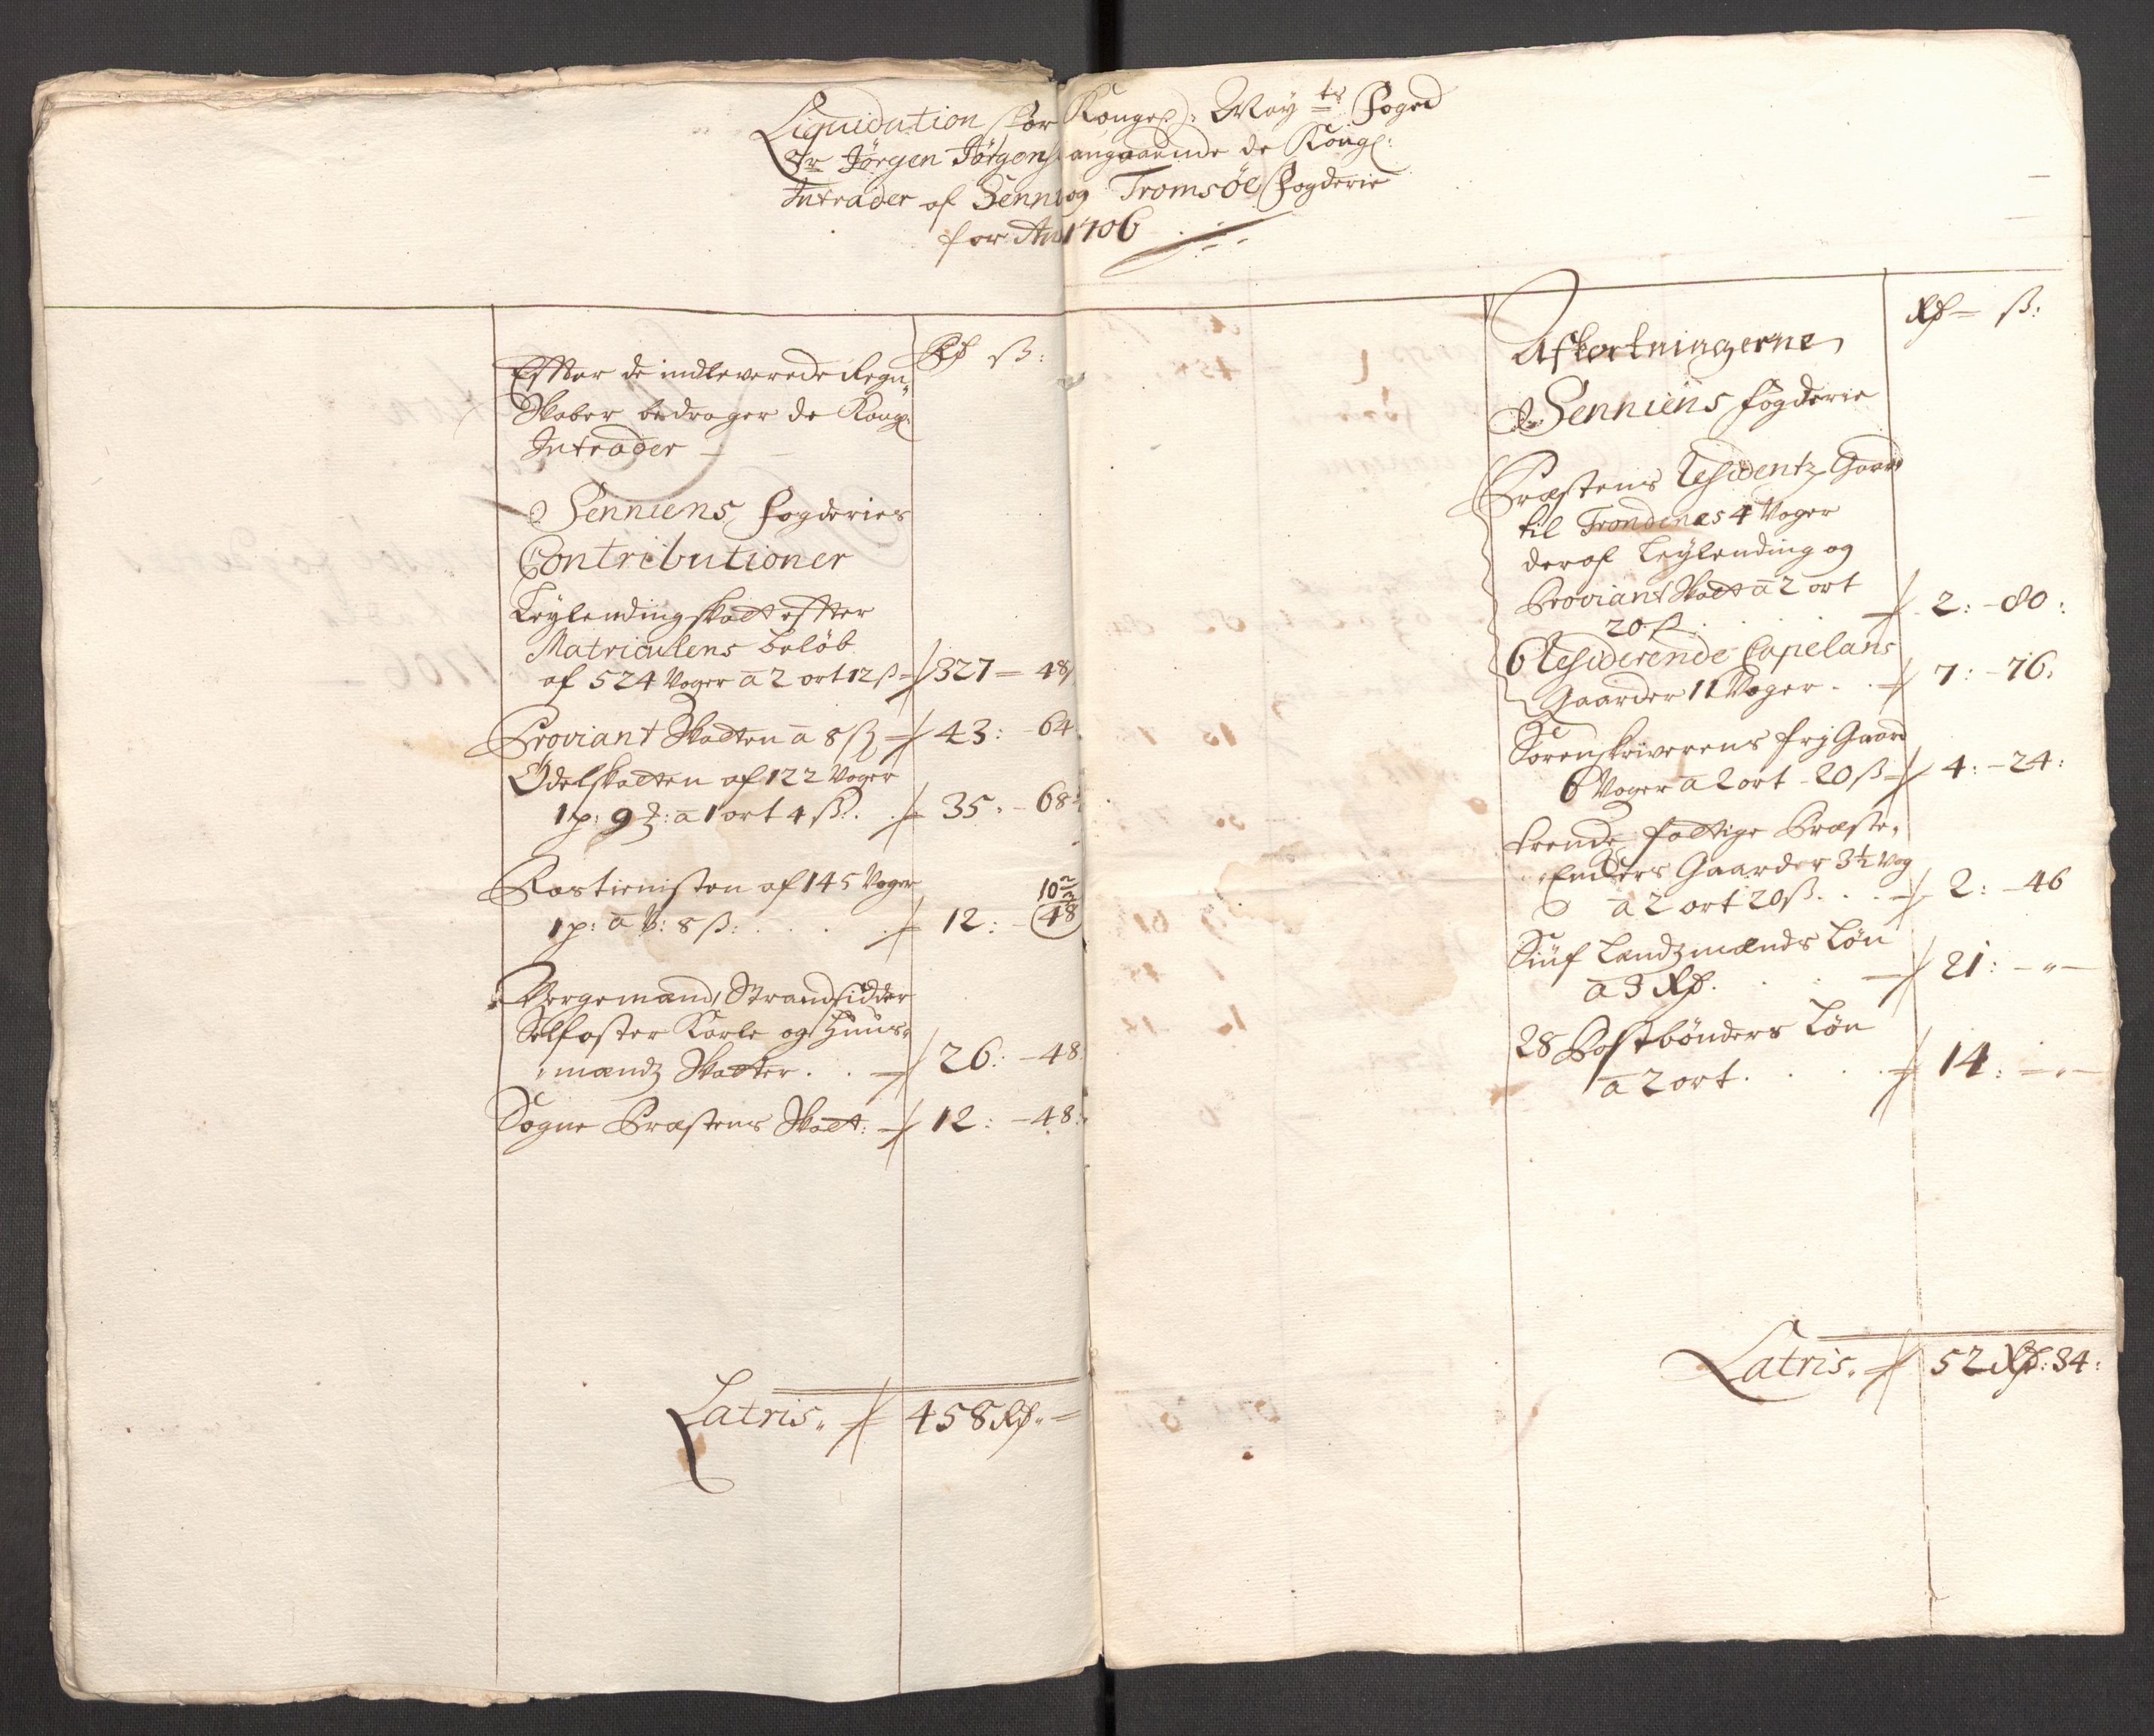 Liquidation for Kongel: May:ts Foged
Sr Jörgen Jörgens: angaaende de Kongl:
Intrader af Senn: og Tromsöe Fogderie
for Ao 1706
Rd ß:
Effter de indleverede Regn
skaber bedrager de Kongl:
Intrader
Senniens Fogderies
Contributioner
Leylending skatt effter
Matriculens beløb
af 524 Voger à 2 ort 12 ß 327 – 48
Proviant Skatten à 8 ß 43: – 64
Odelskatten af 122 Voger
1 p: 9 : à 1 ort 4 ß: 35 – 68
Rostienisten af 145 Voger
10 2/3
1 p: à V: 8 ß: 12: – 48
Vergemænd, Strandsidder
Selfoster Karle og Huus-
mændz Skatter 26: – 48
Sogne Præstens Skatt: 12: – 48:
Latris 458 Rd
Rd – ß:
Afkortningerne
Senniens fogderie
Præstens Residentz Gaard
til Trondenes 4 Voger
deraf Leylending og
Proviant Skatt à 2 ort
20 ß 2: – 80:
6 Residerende Capelans
Gaarder 11 Voger 7: – 76:
Sorenskriverens fri Gaard
6 Voger à 2 ort – 20 ß 4: – 24:
trende fattige Præste-
Enckers Gaarder 3½ Vog
à 2 ort 20 ß 2: – 46
Siuf Lændzmænds Løn
à 3 Rd 21: – " –
28 Postbönders Løn
à 2 ort 14: – " –
Latris 52 Rd: 34: